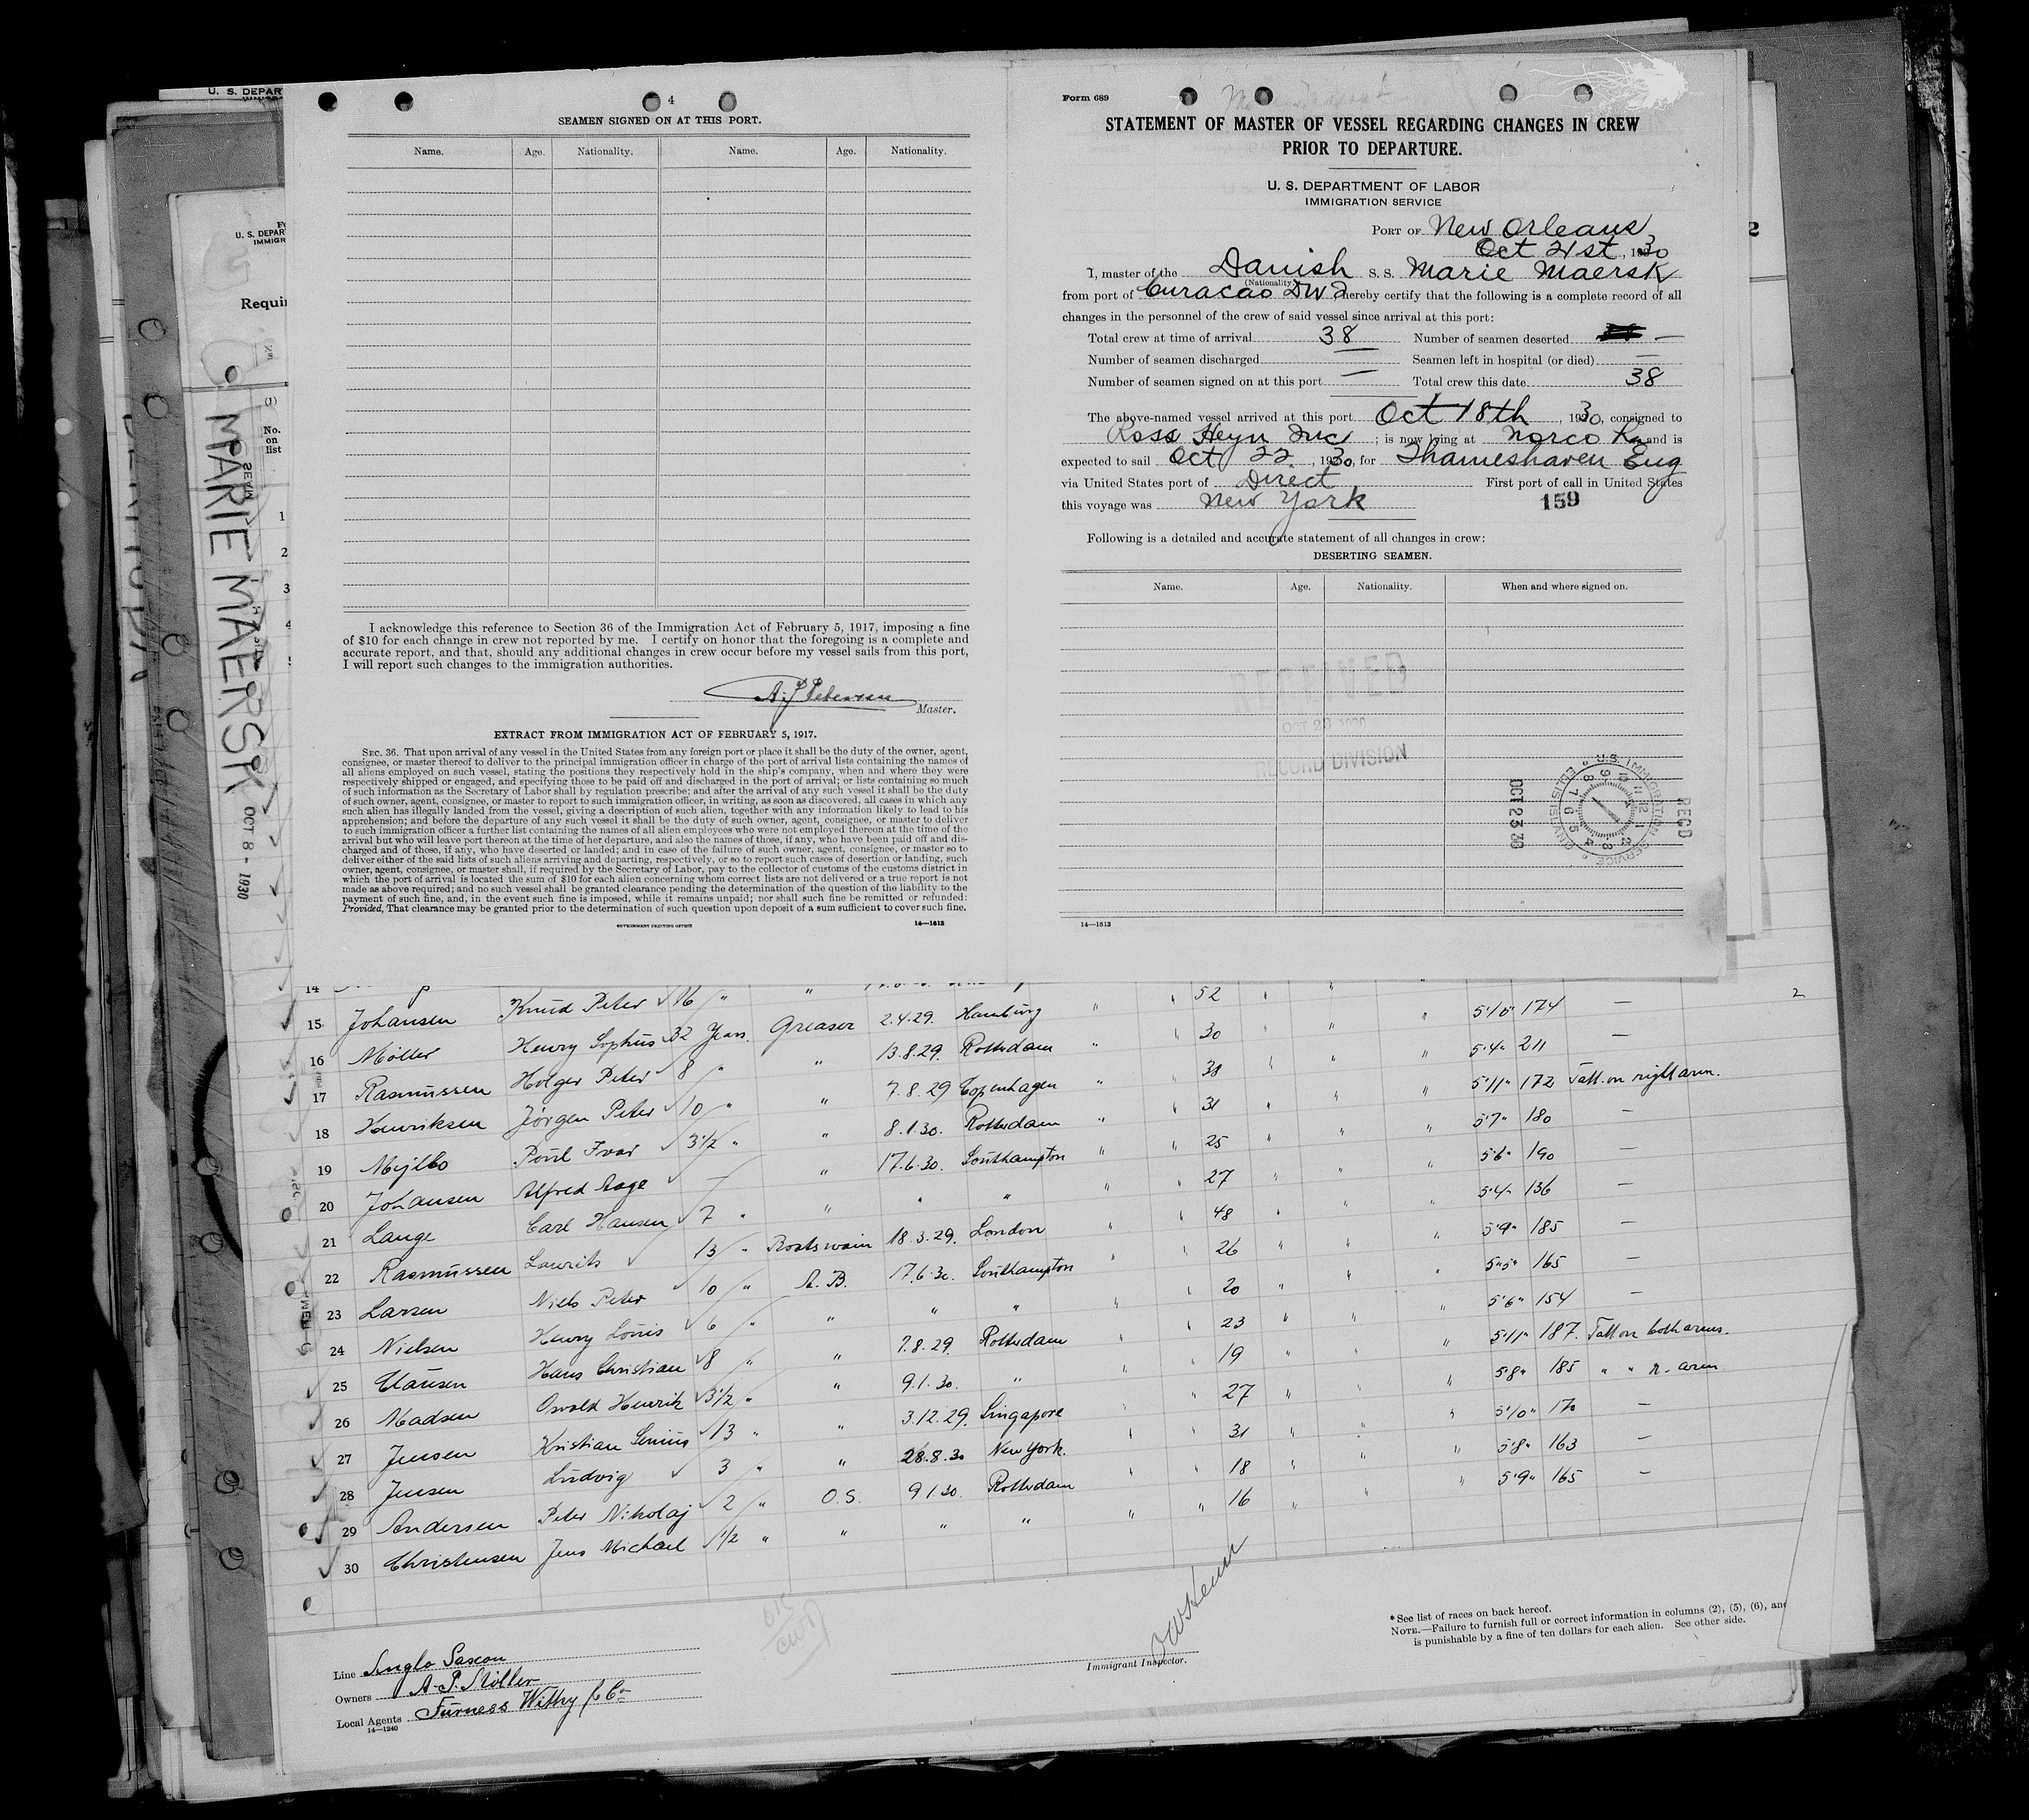 U. S. DEPAR
4
SEAMEN SIGNED ON AT THIS PORT.
Name. Age. Nationality. Name. Age. Nationality.
I acknowledge this reference to Section 36 of the Immigration Act of February 5, 1917, imposing a fine
of $10 for each change in crew not reported by me. I certify on honor that the foregoing is a complete and
accurate report, and that, should any additional changes in crew occur before my vessel sails from this port,
I will report such changes to the immigration authorities.
A. P. Petersen
Master.
EXTRACT FROM IMMIGRATION ACT OF FEBRUARY 5, 1917.
SEC. 36. That upon arrival of any vessel in the United States from any foreign port or place it shall be the duty of the owner, agent,
consignee, or master thereof to deliver to the principal immigration officer in charge of the port of arrival lists containing the names of
all aliens employed on such vessel, stating the positions they respectively hold in the ship's company, when and where they were
respectively shipped or engaged, and specifying those to be paid off and discharged in the port of arrival; or lists containing so much
of such information as the Secretary of Labor shall by regulation prescribe; and after the arrival of any such vessel it shall be the duty
of such owner, agent, consignee, or master to report to such immigration officer, in writing, as soon as discovered, all cases in which any
such alien has illegally landed from the vessel, giving a description of such alien, together with any information likely to lead to his
apprehension; and before the departure of any such vessel it shall be the duty of such owner, agent, consignee, or master to deliver
to such immigration officer a further list containing the names of all alien employees who were not employed thereon at the time of the
arrival but who will leave port thereon at the time of her departure, and also the names of those, if any, who have been paid off and dis-
charged and of those, if any, who have deserted or landed; and in case of the failure of such owner, agent, consignee, or master so to
deliver either of the said lists of such aliens arriving and departing, respectively, or so to report such cases of desertion or landing, such
owner, agent, consignee, or master shall, if required by the Secretary of Labor, pay to the collector of customs of the customs district in
which the port of arrival is located the sum of $10 for each alien concerning whom correct lists are not delivered or a true report is not
made as above required; and no such vessel shall be granted clearance pending the determination of the question of the liability to the
payment of such fine, and, in the event such fine is imposed, while it remains unpaid; nor shall such fine be remitted or refunded:
Provided, That clearance may be granted prior to the determination of such question upon deposit of a sum sufficient to cover such fine.
GOVERNMENT PRINTING OFFICE 14—1613
Form 689
STATEMENT OF MASTER OF VESSEL REGARDING CHANGES IN CREW
PRIOR TO DEPARTURE.
U. S. DEPARTMENT OF LABOR
IMMIGRATION SERVICE
PORT OF New Orleans
Oct 21st, 1930
I, master of the Danish S. S. Marie Maersk
(Nationality)
from port of Curacao DWI hereby certify that the following is a complete record of all
changes in the personnel of the crew of said vessel since arrival at this port:
Total crew at time of arrival 38 Number of seamen deserted —
Number of seamen discharged — Seamen left in hospital (or died) —
Number of seamen signed on at this port — Total crew this date 38
The above-named vessel arrived at this port Oct 18th, 1930, consigned to
Ross Heyn Inc; is now lying at Norco La and is
expected to sail Oct 22, 1930, for Thameshaven Eng
via United States port of Direct First port of call in United States
this voyage was New York 159
Following is a detailed and accurate statement of all changes in crew:
DESERTING SEAMEN.
Name. Age. Nationality. When and where signed on.
RECEIVED
OCT 23 1930
RECORD DIVISION
OCT 23 30
U.S. IMMIGRATION SERVICE ELLIS ISLAND
REC'D
14—1613
U. S. DEPAR
IMMIGR
Requi
(1)
No.
on
list
MARIE MAERSK OCT 8 - 1930
1
2
3
4
14
15 Johansen Knud Peter 16 " " 52 " " "
16 Møller Henry Sophus 32 Years Greaser 2.4.29. Hamburg " " 30 " " " 5'10" 174 —
17 Rasmussen Holger Peter 8 " " 13.8.29. Rotterdam " " 38 " " " 5'4" 211 —
18 Henriksen Jørgen Peter 10 " " 7.8.29 Copenhagen " " 31 " " " 5'11" 172 Tatt. on right arm.
19 Mejlbo Poul Ivar 3½ " " 8.1.30. Rotterdam " " 25 " " " 5'7" 180 —
20 Johansen Alfred Aage — " 17.6.30. Southampton " " 27 " " " 5'6" 190 —
21 Lange Carl Hansen 7 " " " " " " 48 " " " 5'4" 136 —
22 Rasmussen Laurits 13 " Boatswain 18.3.29. London " " 26 " " " 5'9" 185 —
23 Larsen Niels Peter 10 " A. B. 17.6.30. Southampton " " 20 " " " 5'5" 165 —
24 Nielsen Henry Louis 6 " " " " " " 23 " " " 5'6" 154 —
25 Clausen Hans Christian 8 " " 7.8.29. Rotterdam " " 19 " " " 5'11" 187. Tatt on both arms.
26 Madsen Osvald Henrik 3½ " " 9.1.30. " " " 27 " " " 5'8" 185 " " r. arm
27 Jensen Kristian Senius 13 " " 3.12.29. Singapore " " 31 " " " 5'10" 170 —
28 Jensen Ludvig 3 " " 28.8.30 New York. " " 18 " " " 5'8" 163 —
29 Andersen Peter Nikolaj 2 " O.S. 9.1.30. Rotterdam " " 16 " " " 5'9" 165 —
30 Christensen Jens Michael 1½ " " " "
2
Line Anglo Saxon
Owners A. P. Møller
Local Agents Furness Withy & Co
14—1240
Immigrant Inspector.
*See list of races on back hereof.
NOTE.—Failure to furnish full or correct information in columns (2), (5), (6), and
is punishable by a fine of ten dollars for each alien. See other side.